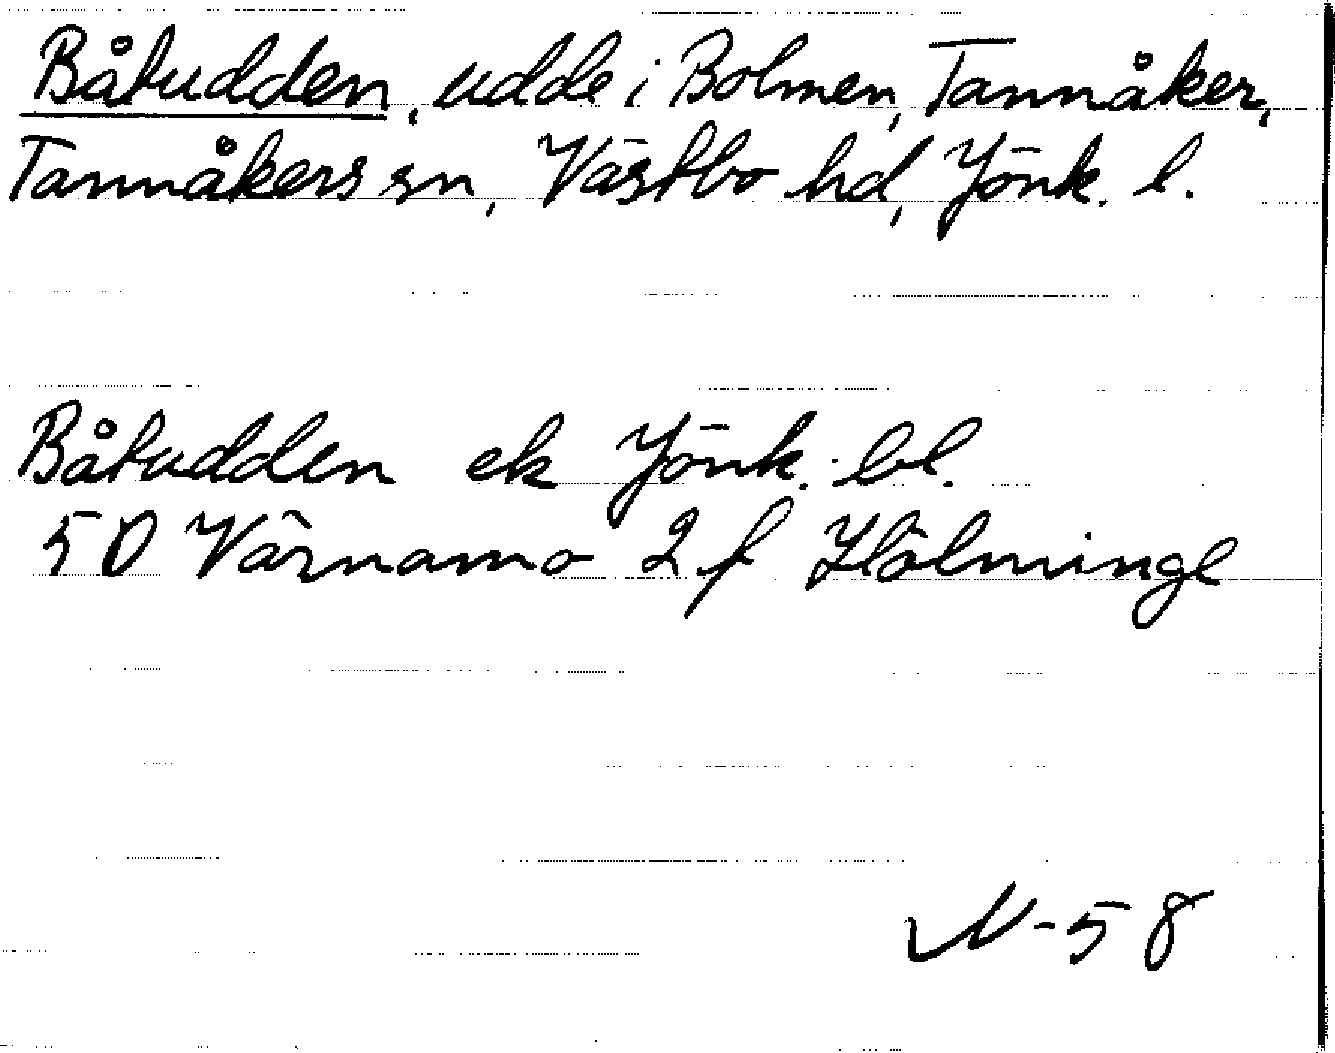 Båtudden, udde i Bolmen, Tannåker,
Tannåkers sn, Västbo hd, Jönk. l.
Båtudden ek Jönk. bl.
5D Värnamo 2f Hölminge
N-58